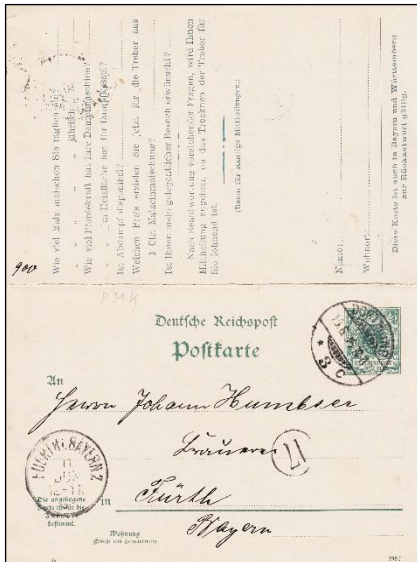 Wie viel Malz maischen Sie täglich ein?
" " " " jährlich "
Wie viel Pferdekraft hat Ihre Dampfmaschine?
" " m Heizfläche hat Ihr Dampfkessel?
Ist Abdampf disponibel?
Welchen Preis erzielen Sie jetzt für die Treber aus
1 Ctr. Malzeinmaischung?
Ist Ihnen mein gelegentlicher Besuch erwünscht?
Nach Beantwortung vorstehender Fragen, wird Ihnen
Mittheilung zugehen, ob das Trocknen der Treber für
Sie lohnend ist.
(Raum für sonstige Mittheilungen)
Name:
Wohnort:
Diese Karte ist auch in Bayern und Württemberg
zur Rückantwort gültig.
900
P31K
Deutsche Reichspost
Postkarte
An
Herrn Johann Humbser
Brauerei
17
in Fürth
Bayern
Die angebogene
Karte ist für die
Antwort
bestimmt.
Wohnung
FUERTH(BAYERN)2
11
JUN
DORTMUND
3 C